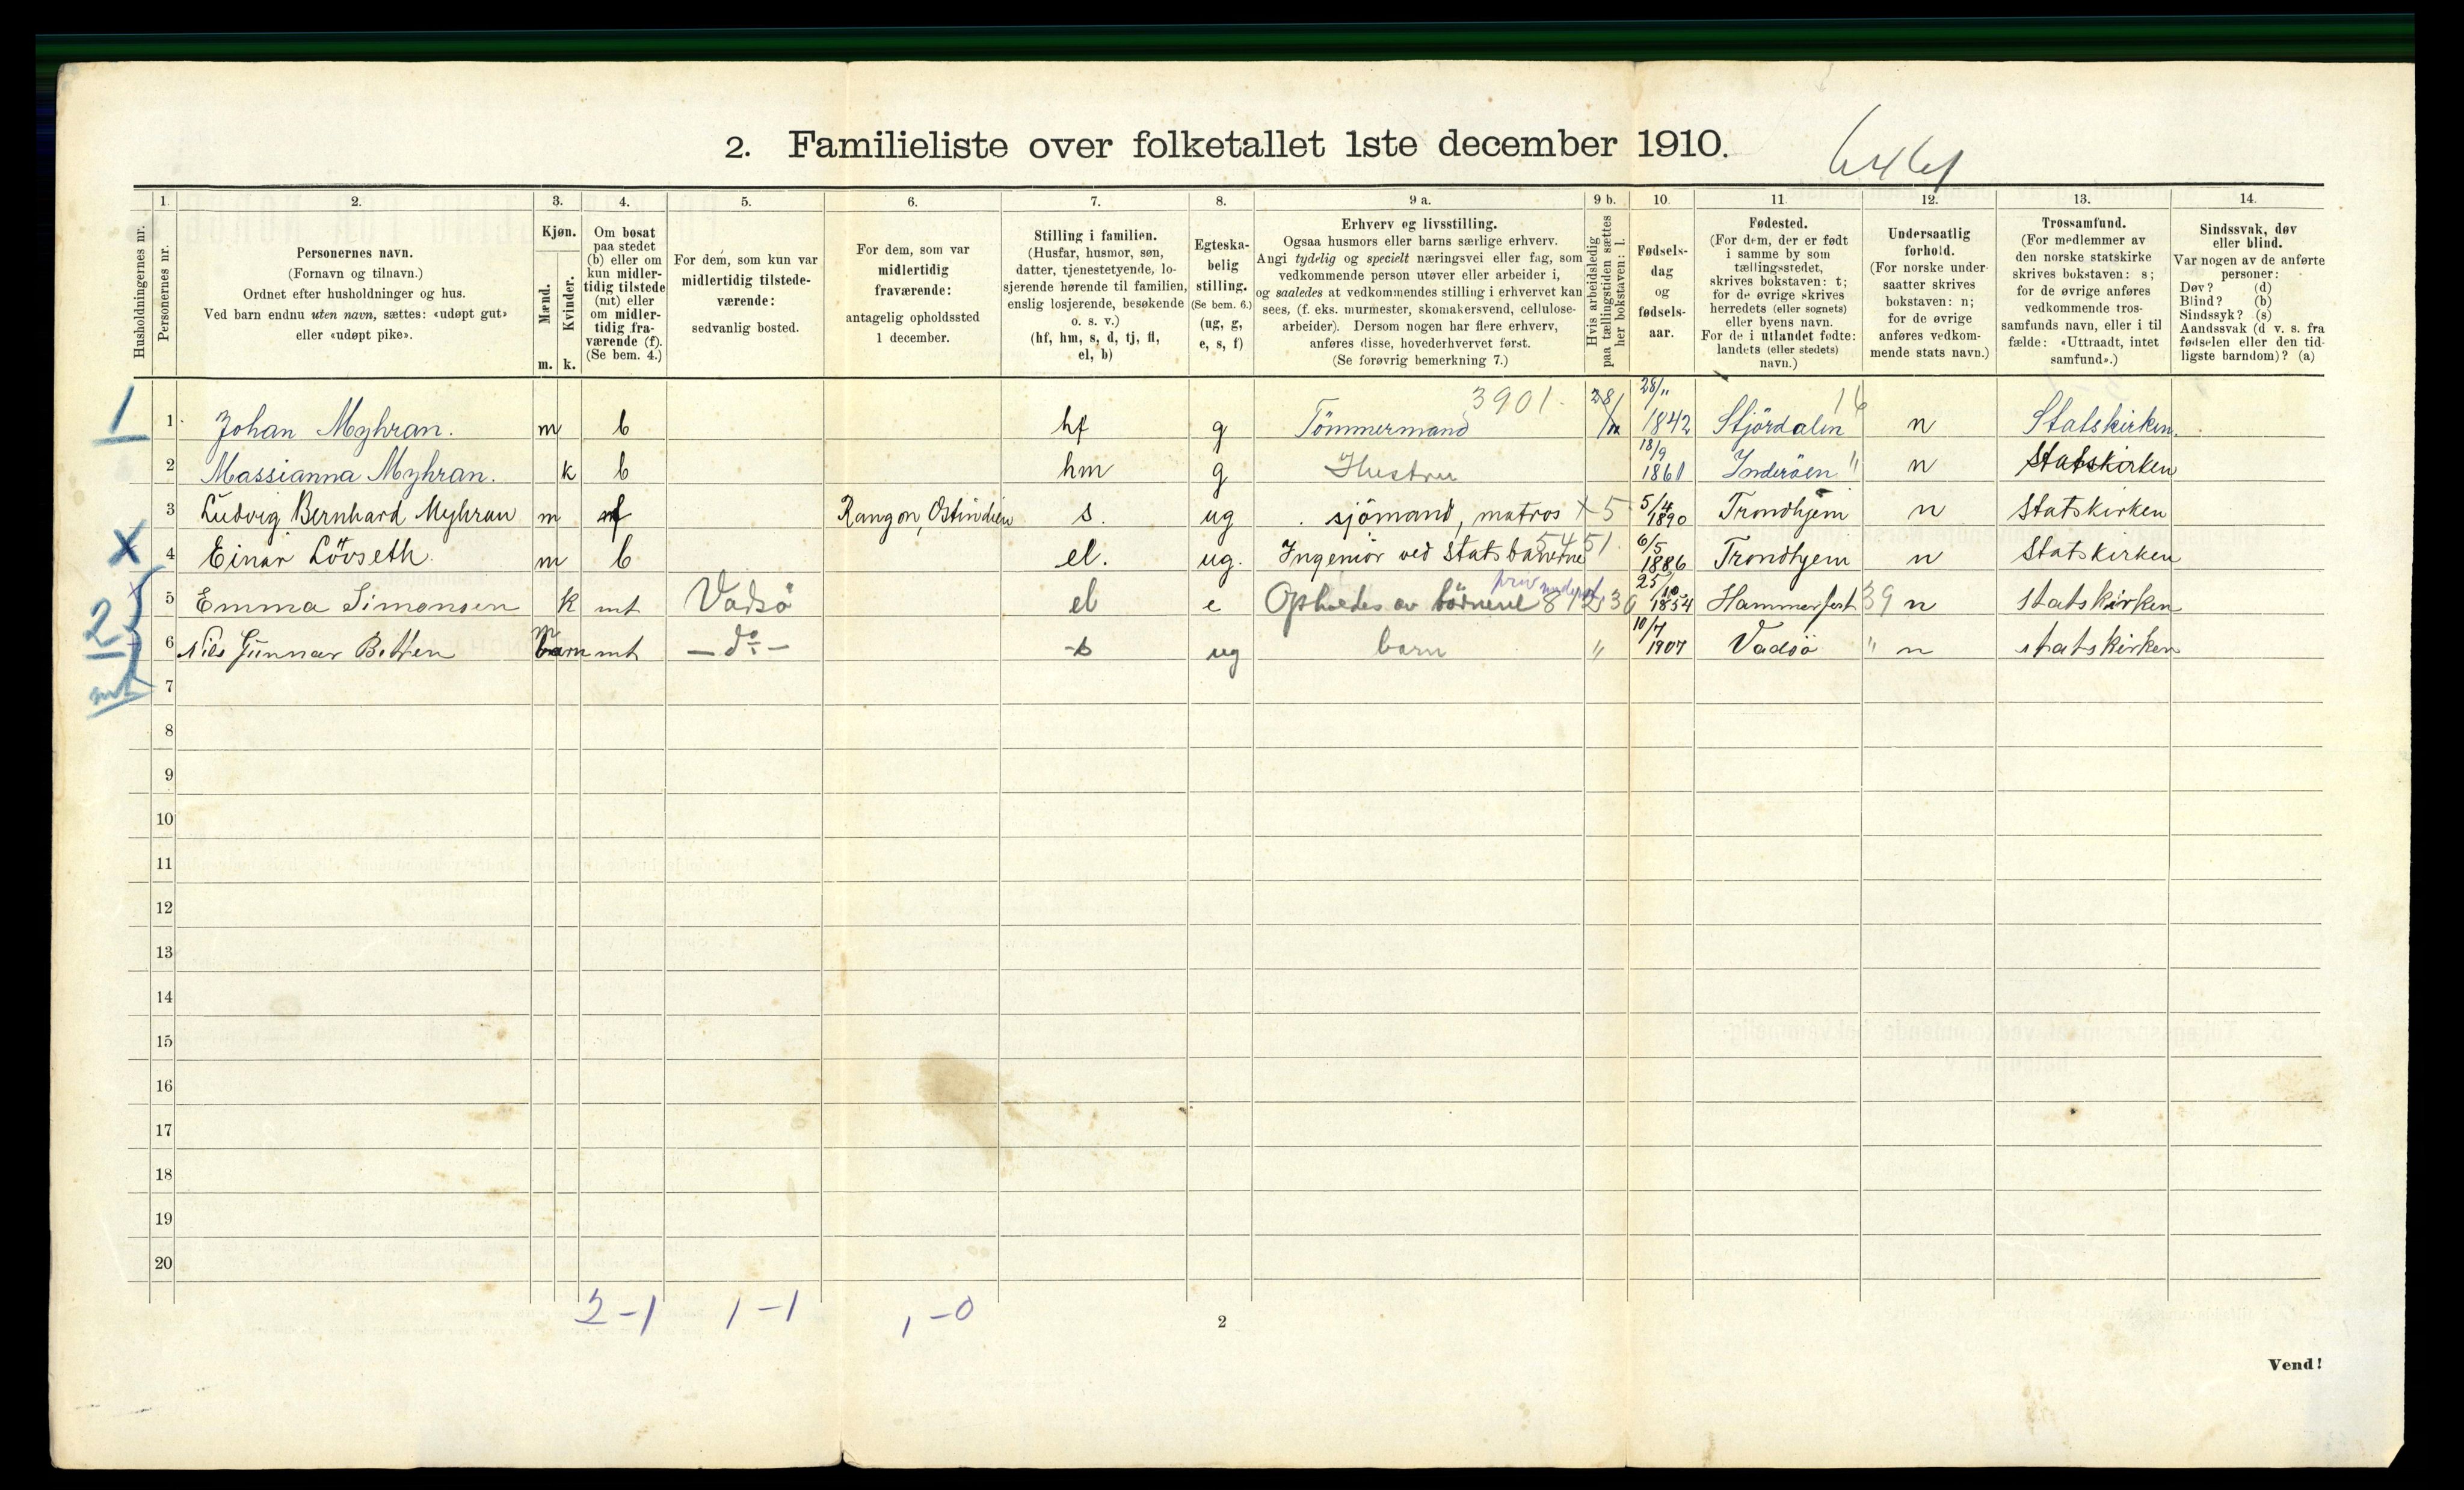 2. Familieliste over folketallet 1ste december 1910.
Husholdningernes nr.
1.
Personernes nr.
2.
Personernes navn.
(Fornavn og tilnavn.)
Ordnet efter husholdninger og hus.
Ved barn endnu uten navn, sættes: «udøpt gut»
eller «udøpt pike».
3.
Kjøn.
Mænd.
m.
Kvinder.
k.
4.
Om bosat
paa stedet
(b) eller om
kun midler-
tidig tilstede
(mt) eller
om midler-
tidig fra-
værende (f).
(Se bem. 4.)
5.
For dem, som kun var
midlertidig tilstede-
værende:
sedvanlig bosted.
6.
For dem, som var
midlertidig
fraværende:
antagelig opholdssted
1 december.
7.
Stilling i familien.
(Husfar, husmor, søn,
datter, tjenestetyende, lo-
sjerende hørende til familien,
enslig losjerende, besøkende
o. s. v.)
(hf, hm, s, d, tj, fl,
el, b)
8.
Egteska-
belig
stilling.
(Se bem. 6.)
(ug, g,
e, s, f)
9 a.
Erhverv og livsstilling.
Ogsaa husmors eller barns særlige erhverv.
Angi tydelig og specielt næringsvei eller fag, som
vedkommende person utøver eller arbeider i,
og saaledes at vedkommendes stilling i erhvervet kan
sees, (f. eks. murmester, skomakersvend, cellulose-
arbeider). Dersom nogen har flere erhverv,
anføres disse, hovederhvervet først.
(Se forøvrig bemerkning 7.)
9 b.
Hvis arbeidsledig
paa tællingstiden sættes
her bokstaven: l.
10.
Fødsels-
dag
og
fødsels-
aar.
11.
Fødested.
(For dem, der er født
i samme by som
tællingsstedet,
skrives bokstaven: t;
for de øvrige skrives
herredets (eller sognets)
eller byens navn.
For de i utlandet fødte:
landets (eller stedets)
navn.)
12.
Undersaatlig
forhold.
(For norske under-
saatter skrives
bokstaven: n;
for de øvrige
anføres vedkom-
mende stats navn.)
13.
Trossamfund.
(For medlemmer av
den norske statskirke
skrives bokstaven: s;
for de øvrige anføres
vedkommende tros-
samfunds navn, eller i til
fælde: «Uttraadt, intet
samfund».)
14.
Sindssvak, døv
eller blind.
Var nogen av de anførte
personer:
Døv? (d)
Blind? (b)
Sindssyk? (s)
Aandssvak (d v. s. fra
fødselen eller den tid-
ligste barndom)? (a)
1 1 Johan Myhran. m b hf g Tömmermand 3901. 28/11 1842 Stjördalen 16 n Statskirken.
2 Massianna Myhran. k b hm g Hustru 18/9 1861 Inderöen " n Statskirken
3 Ludvig Bernhard Myhran m f Rangon, Ostindien s. ug sjömand, matros x 5 5/4 1890 Trondhjem n Statskirken
x 4 Einar Lövseth. m b el. ug. Ingeniör ved Statsbanerne 5451. 6/5 1886 Trondhjem n Statskirken
2 5 Emma Simonsen k mt Vadsö el e Opholdes av börnene 25/10 1854 Hammerfest 39 n statskirken
mt 6 Nils Gunnar Betten m barn mt - do - s ug barn " 10/7 1907 Vadsö " n statskirken
7
8
9
10
11
12
13
14
15
16
17
18
19
20
2-1 1-1 1-0
2
Vend!